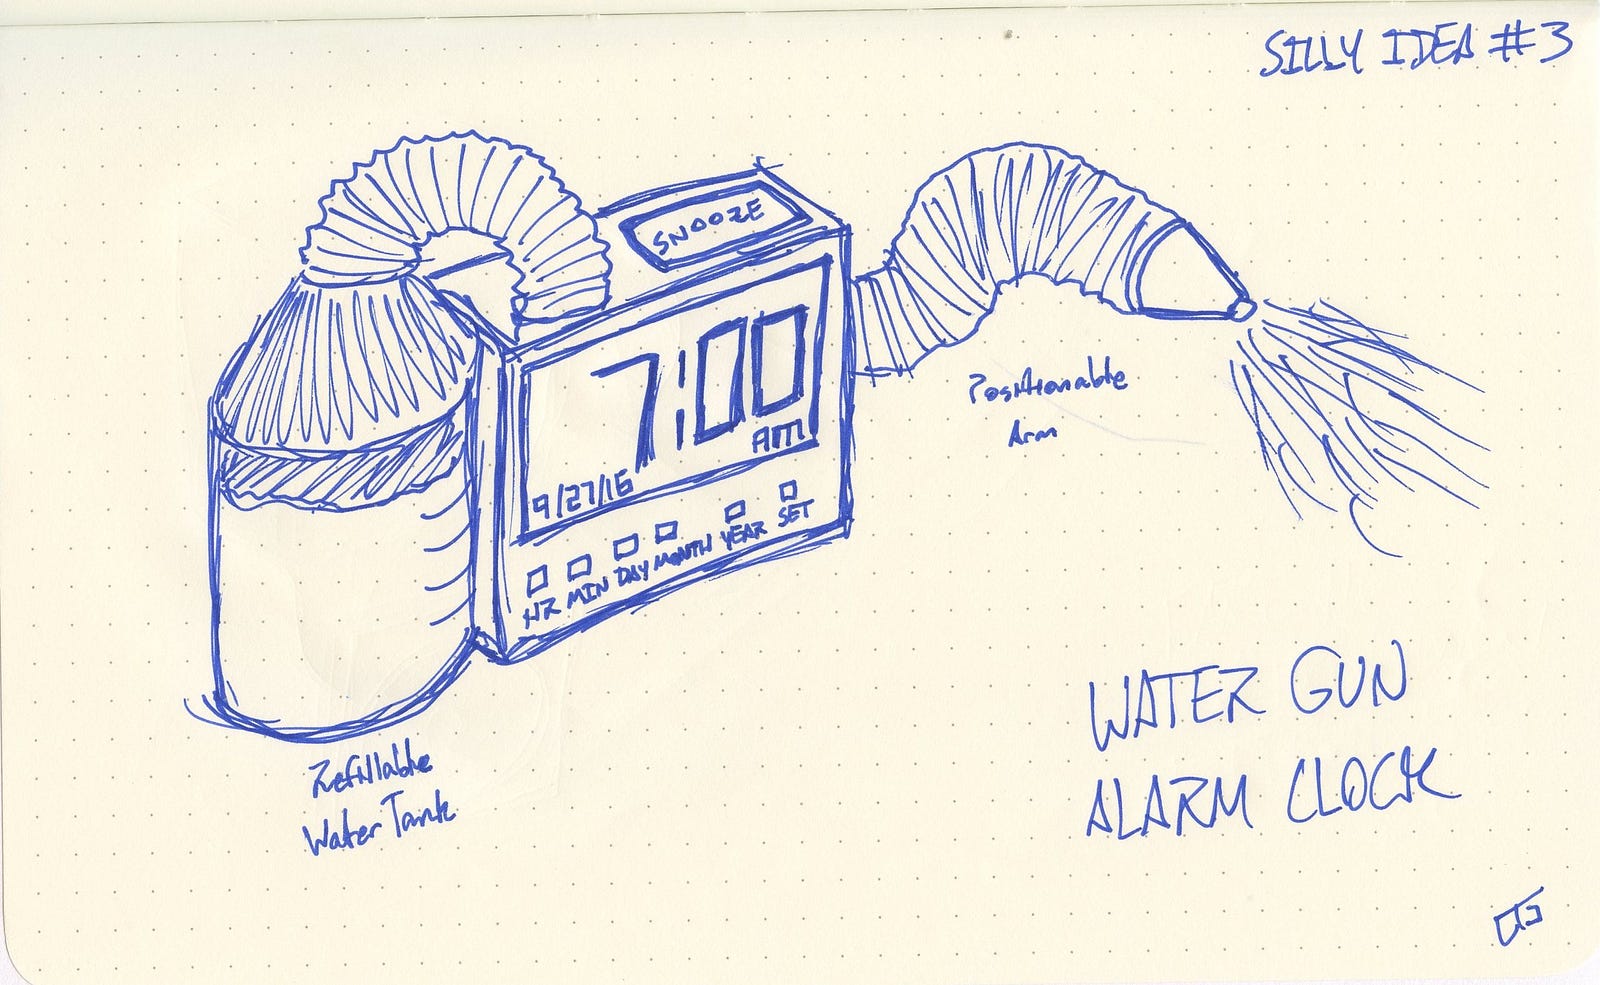 SILLY IDEA #3
SNOOZE
7:00
AM
9/27/16
HR MIN DAY MONTH YEAR SET
Positionable
Arm
Refillable
Water Tank
WATER GUN
ALARM CLOCK